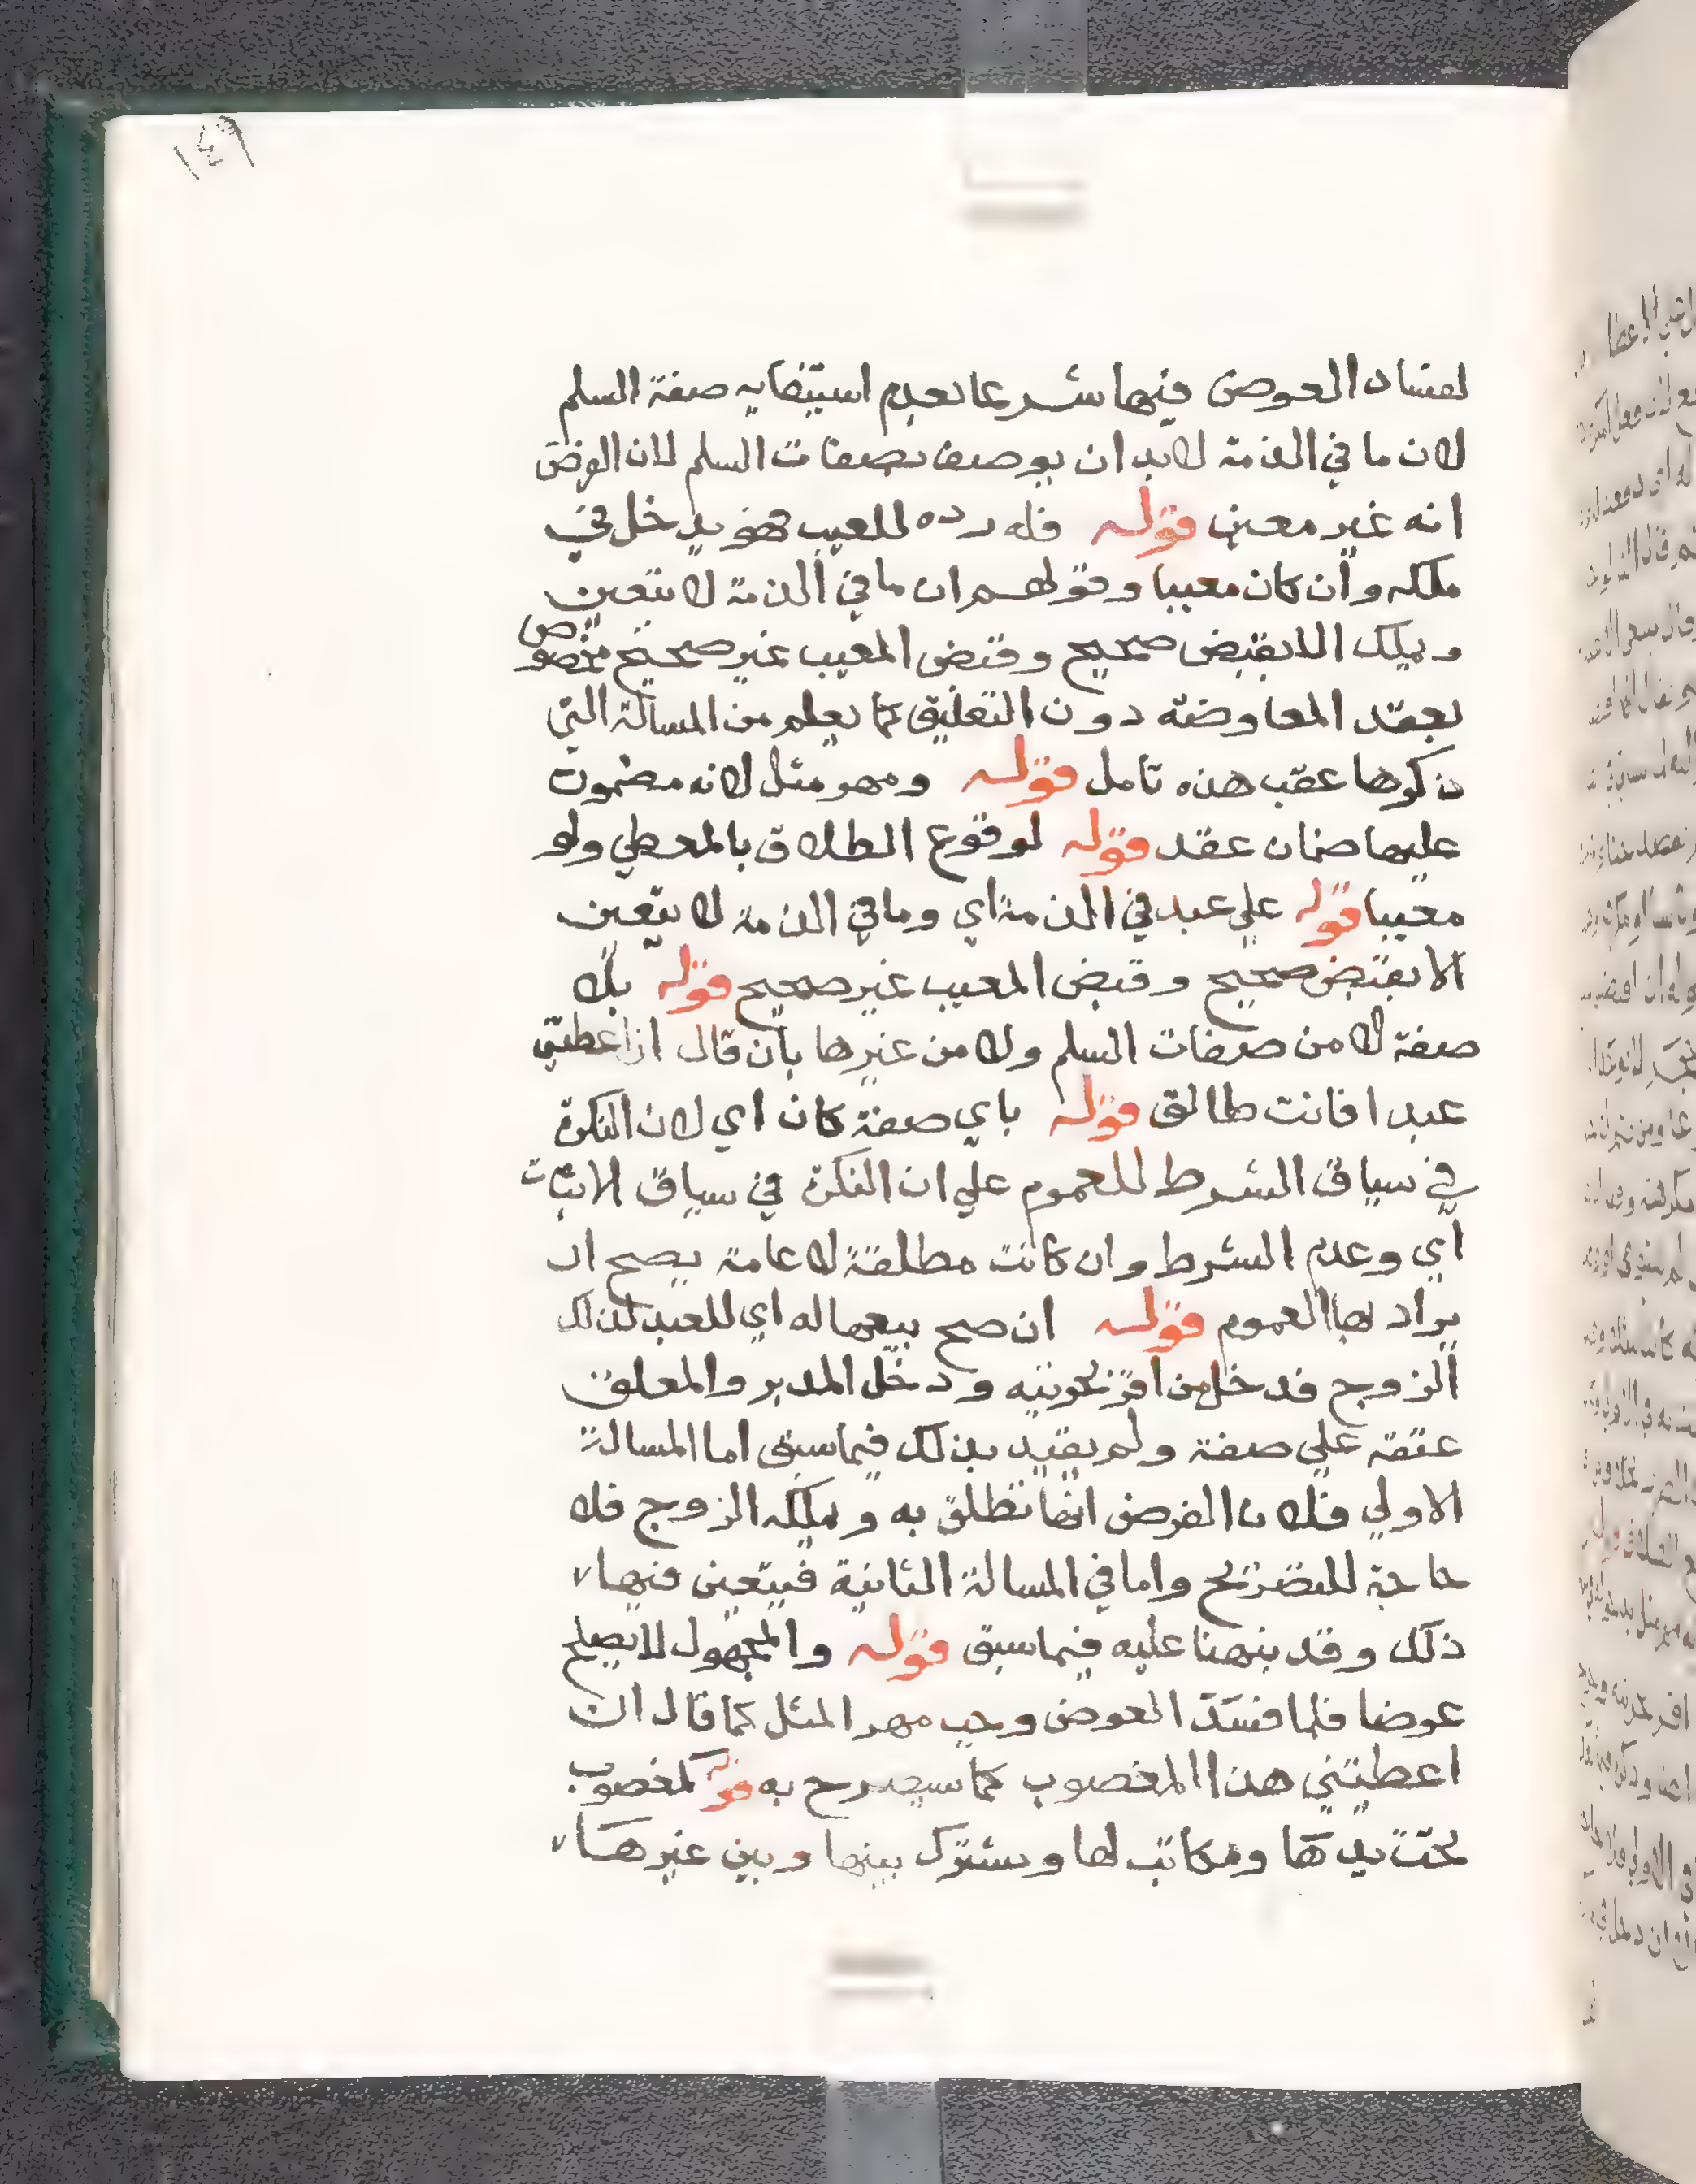 ١٤٩
لفساد العوض فيها شرعا بعدم استيفايه صفة السلم
لان ما في الذمة لابد ان يوصف بصفات السلم لان الفرض
انه غير معين قوله فله رده للعيب فهو يدخل في
ملكه وان كان معيبا وقولهم ان ما في الذمة لا يتعين
ويملك الا بقبض صحيح وقبض المعيب غير صحيح مخصوص
بعقد المعاوضة دون التعليق كما يعلم من المسالة التي
ذكرها عقب هذه تامل قوله ومهر مثل لانه مضمون
عليها ضمان عقد قوله لوقوع الطلاق بالمعطي ولو
معيبا قوله علي عبد في الذمة اي وما في الذمة لا يتعين
الا بقبض صحيح وقبض المعيب غير صحيح قوله بلا
صفة لا من صفات السلم ولا من غيرها بان قال ان اعطيتني
عبدا فانت طالق قوله باي صفة كان اي لان النكرة
في سياق الشرط للعموم علي ان النكرة في سياق الاثبات
اي وعدم الشرط وان كانت مطلقة لا عامة يصح ان
يراد بها العموم قوله ان صح بيعها له اي للعبد لذلك
الزوج فدخل من اقر بحريته ودخل المدبر والمعلق
عتقه علي صفة ولم يقيد بذلك فيما سبق اما المسالة
الاولي فلان الفرض انها تطلق به ويملكه الزوج فلا
حاجة للتصريح واما في المسالة الثانية فيتعين فيها
ذلك وقد نبهنا عليه فيما سبق قوله والمجهول لا يصلح
عوضا فلما فسد العوض وجب مهر المثل كما قال ان
اعطيتني هذا المغصوب كما سيصرح به قوله كمغصوب
تحت يدها ومكاتب لها ومشترك بينها وبين غيرها